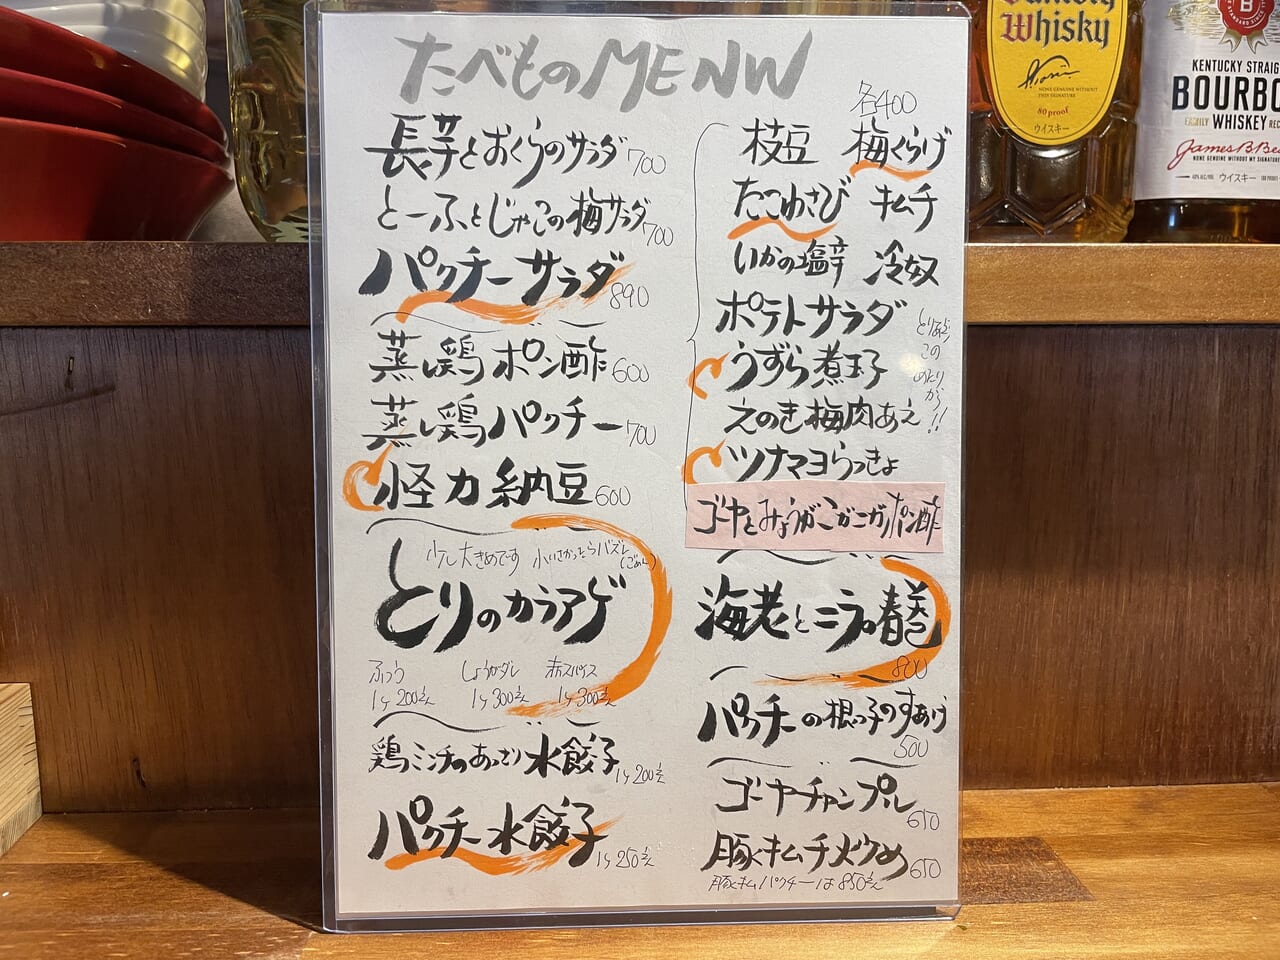 たべもの MENU
長芋とおくらのサラダ 700
とーふとじゃこの梅サラダ 700
パクチーサラダ 890
蒸し鶏 ポン酢 600
蒸し鶏 パクチー 700
怪力納豆 600
少し大きめです 小いさかったらバズレ(ごめん)
とりのカラアゲ
ふつう しょうがダレ 赤スパイス
1ケ200えん 1ケ300えん 1ケ300えん
鶏ミンチのあっさり水餃子 1ケ200えん
パクチー水餃子 1ケ250えん
各400
枝豆 梅くらげ
たこわさび キムチ
いかの塩辛 冷奴
ポテトサラダ
うずら煮玉子
えのき梅肉あえ
ツナマヨらっきょ
とりあえず
この
あたり
から!!
ゴーヤとみょうがこがニガリポン酢
海老とニラの春巻
800
パクチーの根っ子のすあげ
500
ゴーヤーチャンプル 650
豚キムチ炒め 650
豚キムパクチーは850えん
Suntory
Whisky
80 proof
ウイスキー
B
KENTUCKY STRAIG
BOURBO
FAMILY WHISKEY REC
James B. Be
ウイスキー